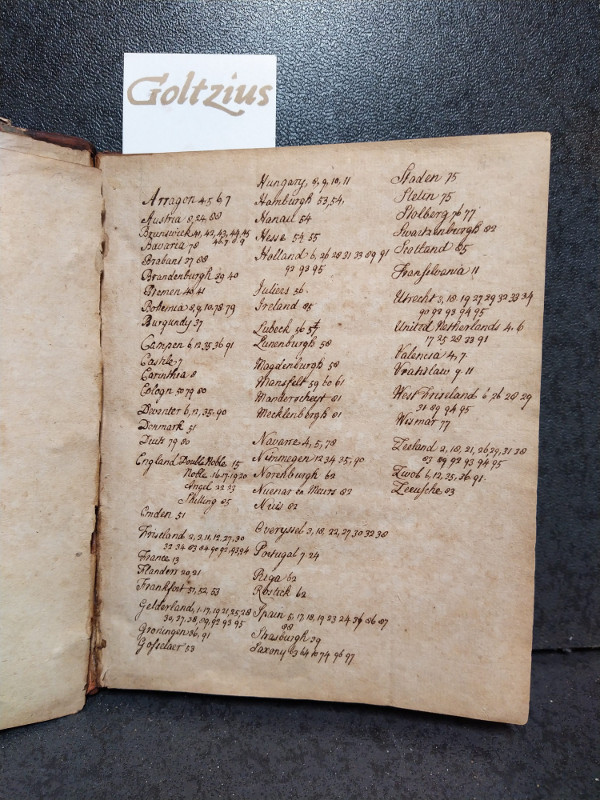 Goltzius
Arragon 4. 5. 6. 7
Austria 8, 24, 88
Brunswick 41, 42, 43, 44, 45
46. 7. 8. 9
Bavaria 78
Brabant 27 88
Brandenburgh 39 40
Bremen 40 41
Bohemia 8, 9, 10. 78 79
Burgundy 37
Campen 6, 12, 35, 36 91
Castile 7
Carinthia 8
Cologn 50 79 80
Deventer 6, 12, 35, 90
Denmark 51
Duits 79 80
England Double Noble 15
Noble 16. 17. 19. 20
Angel 22 23
Shilling 85
Emden 51
Friesland 2, 3, 11, 12, 27, 30
32 34 83 84 90 92 93 94
France 13
Flandern 20, 21
Frankfort 51, 52, 53
Gelderland, 1, 17, 19, 21, 25, 28
30, 37, 38, 19, 92, 93, 95
Groningen 36, 91
Gosselaer 53
Hungary, 8, 9, 10, 11
Hamburgh 53, 54,
Hanau 54
Hesse 54 55
Holland 6, 26 28 31 33 89 91
92 93 95
Juliers 56
Ireland 85
Lubeck 56 57
Lunenburgh 58
Magdenburgh 58
Mansfelt 59 60 61
Manderscheyt 81
Mecklinbergh 81
Navarre 4, 5, 78
Nimmegen 12 34 35, 90
Norenburgh 62
Nuenar en Meurs 82
Nuis 82
Overyssel 3, 18, 22, 27 30 32 38
Portugal 7. 24
Riga 62
Rostick 62
Spain 5, 17, 18, 19 23 24 36 86 87
88
Strasburgh 39
Saxony 63 64 to 74 96 97
Staden 75
Stetin 75
Stolberg 76 77
Swartzenburgh 82
Scotland 85
Transylvania 11
Utrecht 3, 18, 19 27 29 32 33 34
90 92 93 94 95
United Netherlands 4. 6
17 25 28 33 91
Valencia 4, 7.
Vratslaw 9 11
West Friesland 6, 26 28 29
31 89 94 95
Wismar 77
Zeeland 2, 18, 21, 26, 29, 31 38
83 89 92 93 94 95
Zwol 6, 12, 25, 36 91.
Zeeusche 83